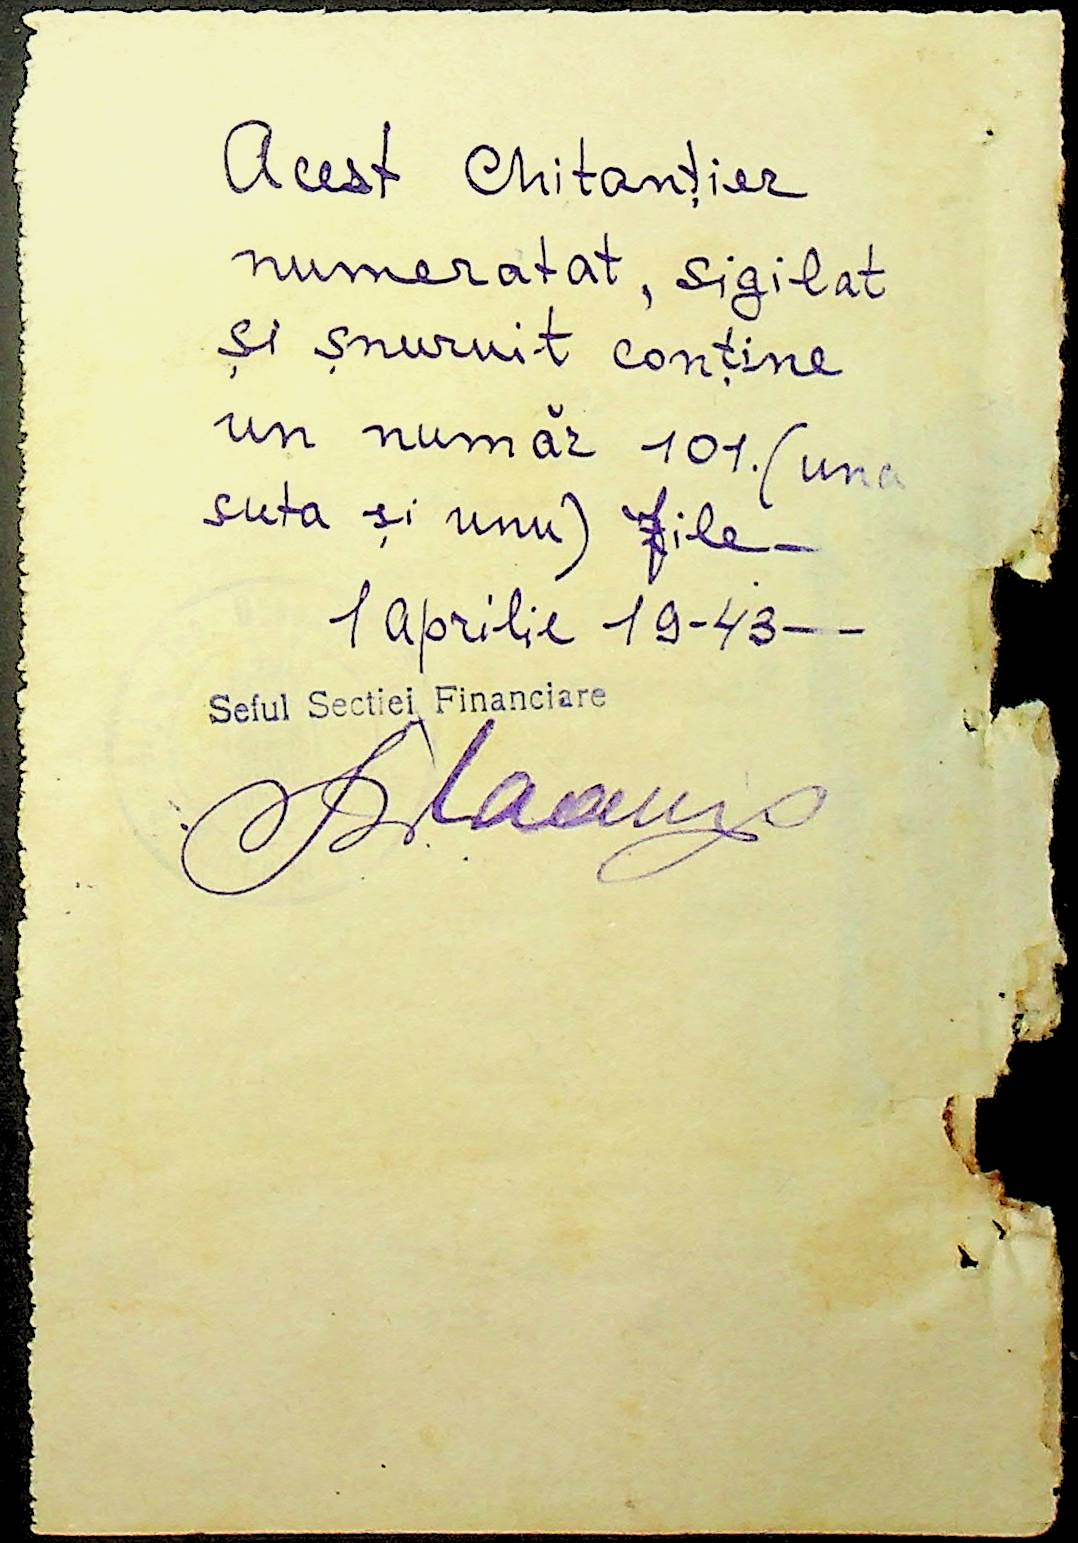 Acest Chitanțier
numeratat, sigilat
și șnuruit conține
un număr 101. (una
suta și unu) file—
1 Aprilie 19-43—
Seful Sectiei Financiare